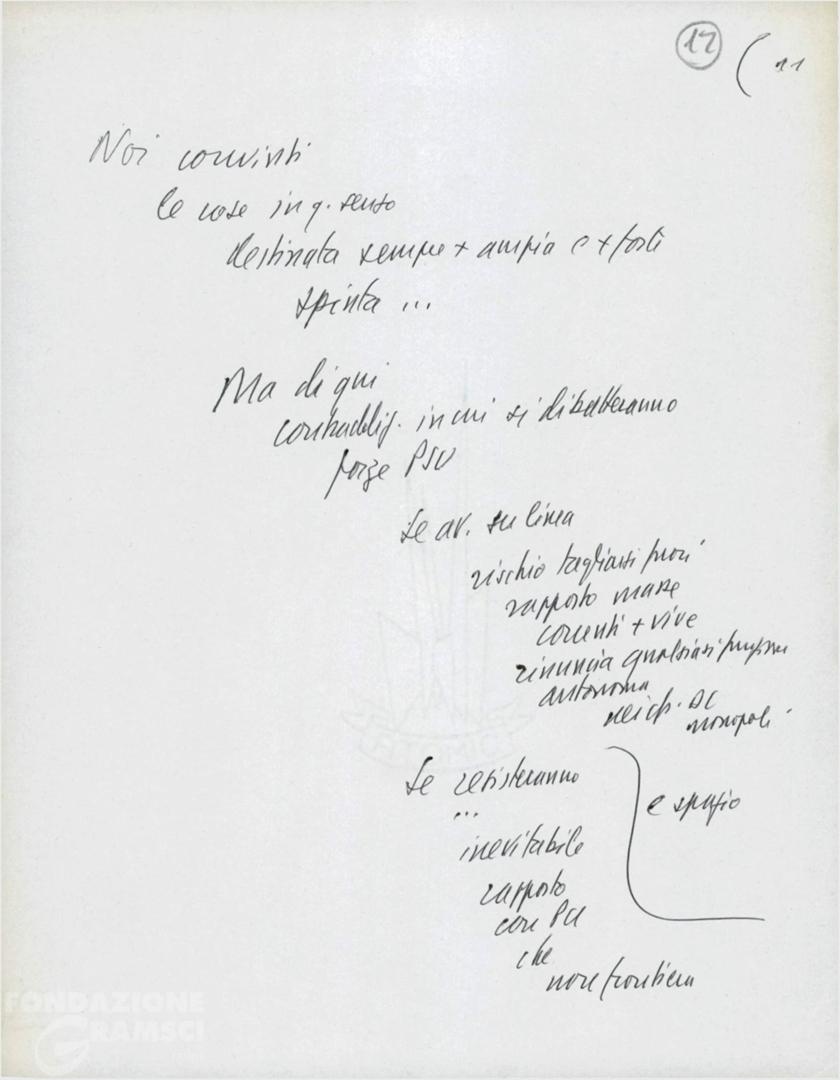 12 ( 11
Noi convinti
le cose in q. senso
destinata sempre + ampia e + forte
spinta ...
Ma di qui
contraddiz. in cui si dibatteranno
forze PSU
Se av. su linea
rischio tagliarsi fuori
rapporto masse
correnti + vive
rinuncia qualsiasi funzione
autonoma
DC
monopoli
Se resisteranno
...
e spazio
inevitabile
rapporto
con PCI
che
non frontiera
FONDAZIONE
GRAMSCI
ATOMIC